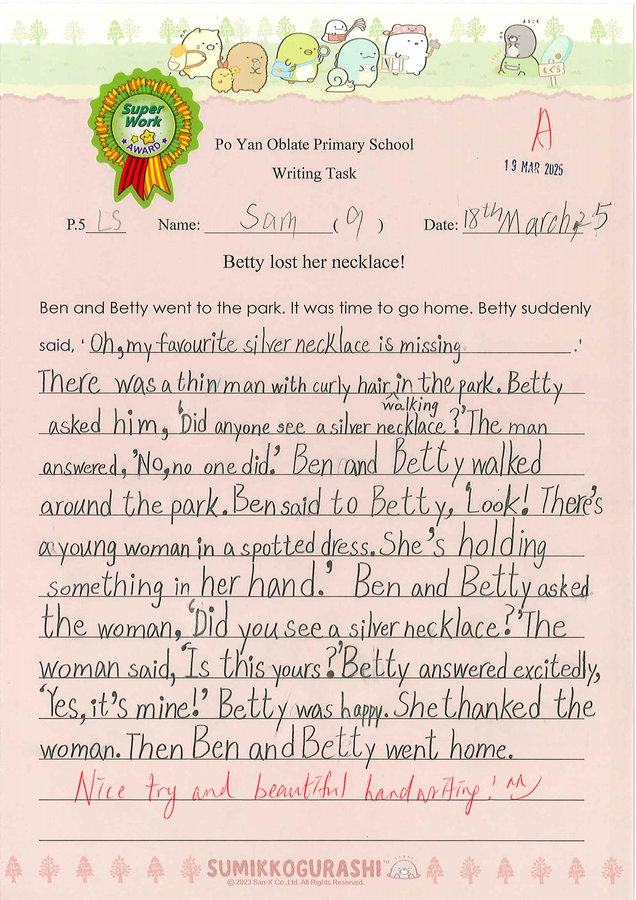 Super
Work
AWARD
Po Yan Oblate Primary School
Writing Task
A
19 MAR 2025
P.5 LS Name: Sam ( 9 ) Date: 18th March, 25
Betty lost her necklace!
Ben and Betty went to the park. It was time to go home. Betty suddenly
said, ' Oh, my favourite silver necklace is missing .'
There was a thin man with curly hair in the park. Betty
walking
asked him, 'Did anyone see a silver necklace?' The man
answered, 'No, no one did.' Ben and Betty walked
around the park. Ben said to Betty, 'Look! There's
a young woman in a spotted dress. She's holding
something in her hand.' Ben and Betty asked
the woman, 'Did you see a silver necklace?' The
woman said, 'Is this yours?' Betty answered excitedly,
'Yes, it's mine!' Betty was happy. She thanked the
woman. Then Ben and Betty went home.
Nice try and beautiful handwriting! ^^
SUMIKKOGURASHI™
© 2023 San-X Co.,Ltd. All Rights Reserved.